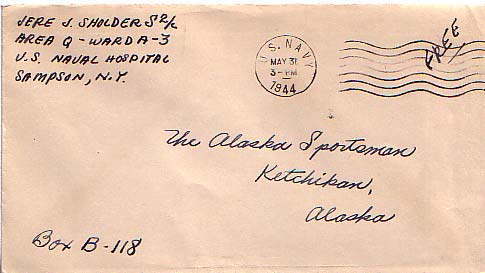 JERE J. SHOLDER S2/c
AREA Q - WARD A-3
U.S. NAVAL HOSPITAL
SAMPSON, N.Y.
U.S. NAVY
MAY 31
3-PM
1944
FREE
The Alaska Sportsman
Ketchikan,
Alaska
Box B-118